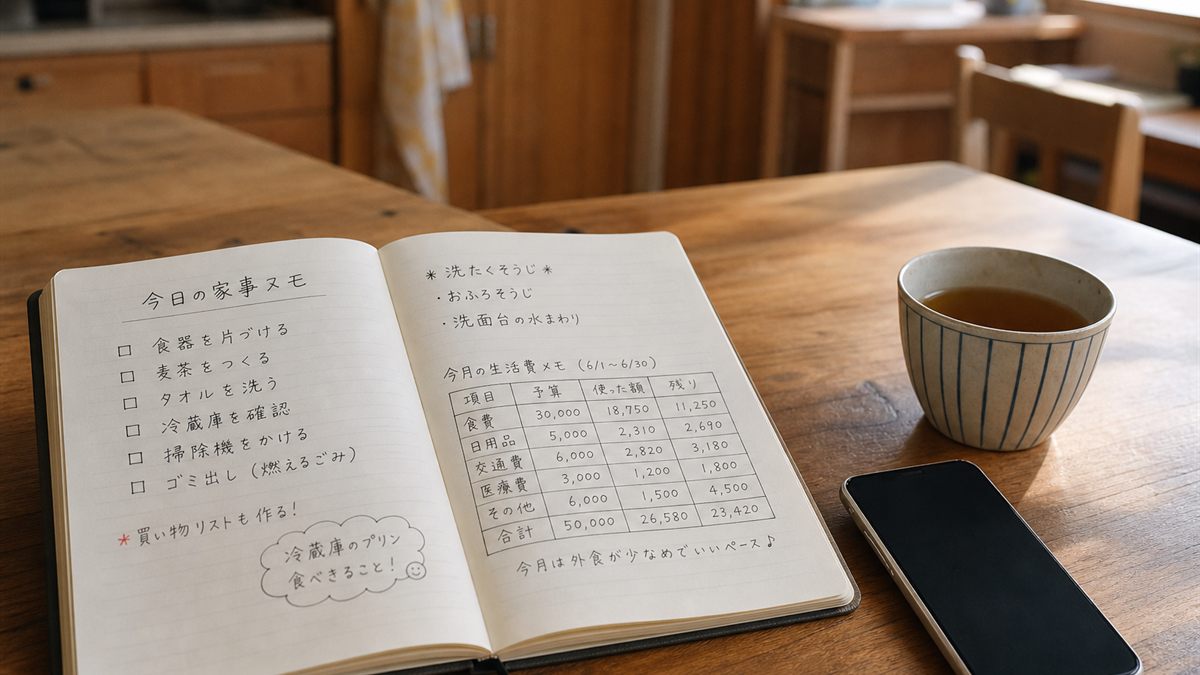 今日の家事メモ
□ 食器を片づける
□ 麦茶をつくる
□ タオルを洗う
□ 冷蔵庫を確認
□ 掃除機をかける
□ ゴミ出し（燃えるごみ）
*買い物リストも作る!
冷蔵庫のプリン
食べきること!☺
* 洗たくそうじ *
・おふろそうじ
・洗面台の水まわり
今月の生活費メモ（6/1～6/30）
項目 予算 使った額 残り
食費 30,000 18,750 11,250
日用品 5,000 2,310 2,690
交通費 6,000 2,820 3,180
医療費 3,000 1,200 1,800
その他 6,000 1,500 4,500
合計 50,000 26,580 23,420
今月は外食が少なめでいいペース♪